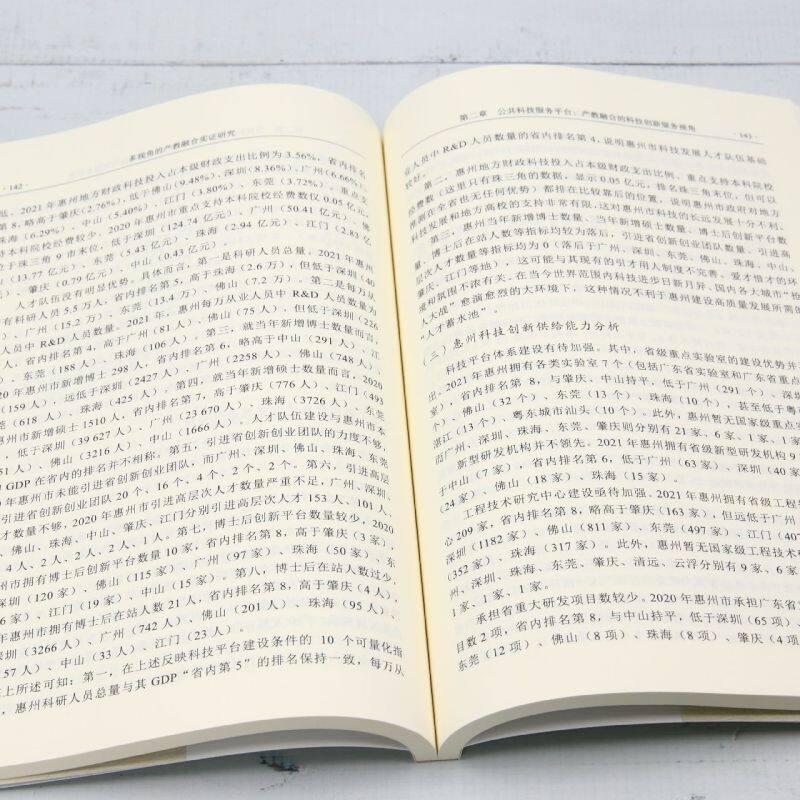 · 142 · 多视角的产教融合实证研究
低，2021年惠州地方财政科技投入占本级财政支出比例为3.56%，省内排名
第8，略高于肇庆（2.76%），低于佛山（9.48%）、深圳（8.36%）、广州（6.66%）、
珠海（6.29%）、中山（5.40%）、江门（3.80%）、东莞（3.72%）。重点支
持本科院校经费较少。2020年惠州市重点支持本科院校经费数仅0.05亿元，
处于珠三角9市末位，低于深圳（124.74亿元）、广州（50.41亿元）、佛
山（13.77亿元）、东莞（5.43亿元）、珠海（2.94亿元）、江门（2.83亿
元）、肇庆（0.79亿元）、中山（0.43亿元）。
人才队伍没有明显优势。具体而言，第一是科研人员总量。2021年惠州
有科研人员5.5万人，省内排名第5，高于珠海（2.6万），但低于深圳（40
、广州（15.2万）、东莞（13.4万）、佛山（7.2万）。第二是每万从
人员中R&D人员数量。2021年，惠州每万从业人员中R&D人员数量为
人，省内排名第4，高于广州（81人）、佛山（75人），但低于深圳（226
、东莞（188人）、珠海（106人）。第三，就当年新增博士数量而言，
20年惠州市新增博士298人，省内排名第6，略高于中山（291人）、江
（159人），远低于深圳（2427人）、广州（2258人）、佛山（748人）、
莞（618人）、珠海（425人）。第四，就当年新增硕士数量而言，2020
惠州市新增硕士1510人，省内排名第7，高于肇庆（776人）、江门（493
，低于深圳（39 627人）、广州（23 670人）、珠海（3726人）、东莞
51人）、佛山（3216人）、中山（1666人）。人才队伍建设与惠州市本
GDP在省内的排名并不相称。第五，引进省创新创业团队的力度不够，
0年惠州市未能引进省创新创业团队，而广州、深圳、佛山、珠海、东莞
引进省创新创业团队20个、16个、4个、2个、2个。第六，引进高层
才数量不够，2020年惠州市引进高层次人才数量严重不足，广州、深圳、
、佛山、珠海、中山、肇庆、江门分别引进高层次人才153人、101人、
、4人、2人、2人、2人、1人。第七，博士后创新平台数量较少，2020
州市拥有博士后创新平台数量10家，省内排名第8，高于肇庆（3家），
深圳（120家）、佛山（115家）、广州（97家）、珠海（50家）、东
家）、江门（19家）、中山（15家）。第八，博士后在站人数过少，
年惠州市拥有博士后在站人数21人，省内排名第8，高于肇庆（4人），
深圳（3266人）、广州（742人）、佛山（201人）、珠海（95人）、
57人）、中山（33人）、江门（23人）。
上所述可知：第一，在上述反映科技平台建设条件的10个可量化指
，惠州科研人员总量与其GDP“省内第5”的排名保持一致，每万从
第二章 公共科技服务平台：产教融合的科技创新服务视角 · 143 ·
业人员中R&D人员数量的省内排名第4，说明惠州市科技发展人才队伍基础
较好。
第二，惠州地方财政科技投入占本级财政支出比例、重点支持本科院校
经费数（这里只有珠三角的数据，显示0.05亿元，排名珠三角末位，但可以
推测在全省也无任何优势）都排在比较靠后的位置，说明惠州市政府对地方
科技发展和地方高校的支持非常有限，这对惠州市科技的长远发展十分不利。
第三，惠州当年新增博士数量、当年新增硕士数量、博士后创新平台数
量、博士后在站人数等指标均较为落后，引进省创新创业团队数量、引进高
层次人才数量等指标均为0（落后于广州、深圳、东莞、佛山、珠海、中山、
肇庆、江门等地），这可能与其现有的引才用人制度不完善、爱才惜才的环
境和氛围不浓有关。在当今世界范围内科技进步日新月异、国内各大城市“抢
人大战”愈演愈烈的大环境下，这种情况不利于惠州建设高质量发展所需的
“人才蓄水池”。
（三）惠州科技创新供给能力分析
科技平台体系建设有待加强。其中，省级重点实验室的建设优势并
出。2021年惠州拥有各类实验室7个（包括广东省实验室和广东省重点
室），省内排名第8，与肇庆、中山持平，低于广州（291个）、深圳
个）、佛山（32个）、东莞（13个）、珠海（10个），甚至低于粤
湛江（13个）、粤东城市汕头（10个）。此外，惠州暂无国家级重点
而广州、深圳、珠海、东莞、肇庆则分别有21家、6家、1家、1家、
新型研发机构并不领先。2021年惠州拥有省级新型研发机构9
于中山（7家），省内排名第6，低于广州（63家）、深圳（40家
（24家）、佛山（18家）、珠海（15家）。
工程技术研究中心建设亟待加强。2021年惠州拥有省级工程
心209家，省内排名第8，略高于肇庆（163家），但远低于广州
深圳（1182家）、佛山（811家）、东莞（497家）、江门（407
（352家）、珠海（317家）。此外，惠州暂无国家级工程技术
州、深圳、珠海、东莞、肇庆、清远、云浮分别有9家、6家
家、1家、1家。
承担省重大研发项目数较少。2020年惠州市承担广东省
目数2项，省内排名第8，与中山持平，低于深圳（65项）
东莞（12项）、佛山（8项）、珠海（8项）、肇庆（4项